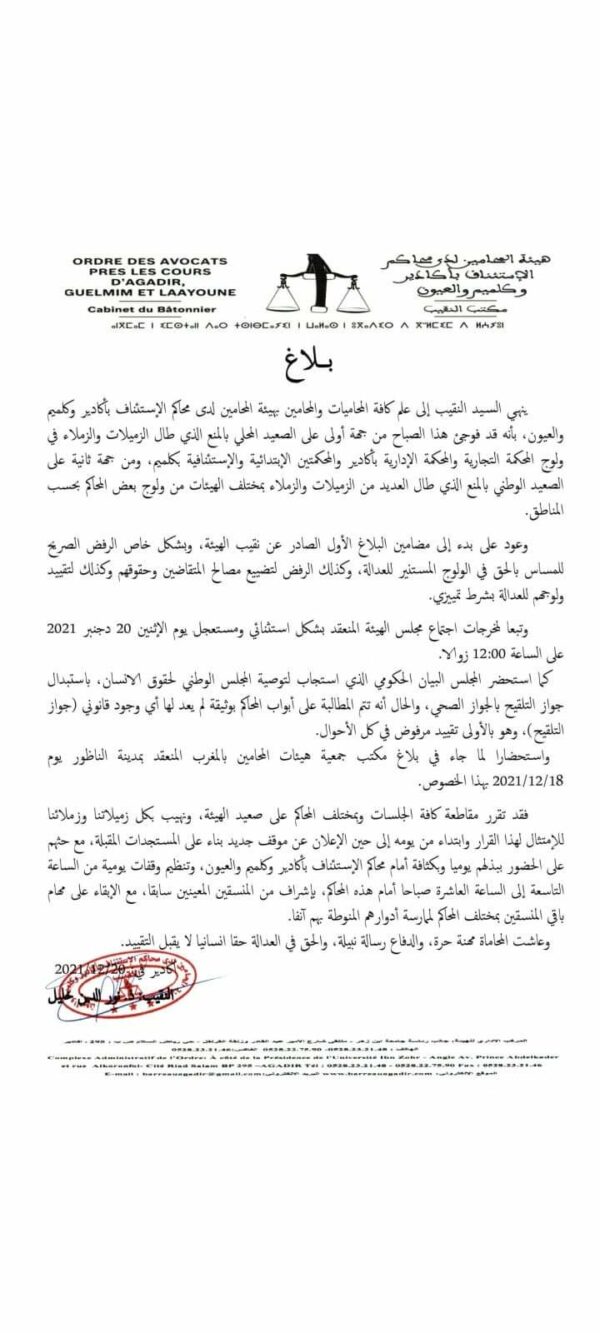 ORDRE DES AVOCATS
PRES LES COURS
D'AGADIR,
GUELMIM ET LAAYOUNE
Cabinet du Bâtonnier
هيئة المحامين لدى محاكم
الإستئناف بأكادير
وكلميم والعيون
مكتب النقيب
بلاغ
ينهي السيد النقيب إلى علم كافة المحاميات والمحامين بهيئة المحامين لدى محاكم الإستئناف بأكادير وكلميم
والعيون، بأنه قد فوجئ هذا الصباح من جهة أولى على الصعيد المحلي بالمنع الذي طال الزميلات والزملاء في
ولوج المحكمة التجارية والمحكمة الإدارية بأكادير والمحكمتين الإبتدائية والإستئنافية بكلميم، ومن جهة ثانية على
الصعيد الوطني بالمنع الذي طال العديد من الزميلات والزملاء بمختلف الهيئات من ولوج بعض المحاكم بحسب
المناطق.
وعود على بدء إلى مضامين البلاغ الأول الصادر عن نقيب الهيئة، وبشكل خاص الرفض الصريح
للمساس بالحق في الولوج المستنير للعدالة، وكذلك الرفض لتضييع مصالح المتقاضين وحقوقهم وكذلك لتقييد
ولوجهم للعدالة بشرط تمييزي.
وتبعا لمخرجات اجتماع مجلس الهيئة المنعقد بشكل استثنائي ومستعجل يوم الإثنين 20 دجنبر 2021
على الساعة 12:00 زوالا.
كما استحضر المجلس البيان الحكومي الذي استجاب لتوصية المجلس الوطني لحقوق الانسان، باستبدال
جواز التلقيح بالجواز الصحي، والحال أنه تتم المطالبة على أبواب المحاكم بوثيقة لم يعد لها أي وجود قانوني (جواز
التلقيح)، وهو بالأولى تقييد مرفوض في كل الأحوال.
واستحضارا لما جاء في بلاغ مكتب جمعية هيئات المحامين بالمغرب المنعقد بمدينة الناظور يوم
2021/12/18 بهذا الخصوص.
فقد تقرر مقاطعة كافة الجلسات وبمختلف المحاكم على صعيد الهيئة، ونهيب بكل زميلاتنا وزملائنا
للإمتثال لهذا القرار وابتداء من يومه إلى حين الإعلان عن موقف جديد بناء على المستجدات المقبلة، مع حثهم
على الحضور ببذلهم يوميا وبكثافة أمام محاكم الإستئناف بأكادير وكلميم والعيون، وتنظيم وقفات يومية من الساعة
التاسعة إلى الساعة العاشرة صباحا أمام هذه المحاكم، بإشراف من المنسقين المعينين سابقا، مع الإبقاء على مهام
باقي المنسقين بمختلف المحاكم لممارسة أدوارهم المنوطة بهم آنفا.
وعاشت المحاماة مهنة حرة، والدفاع رسالة نبيلة، والحق في العدالة حقا انسانيا لا يقبل التقييد.
أكادير في: 2021/12/20
النقيب: ذ. نور الدين خليل
Complexe Administratif de l'Ordre: À côté de la Présidence de l'Université Ibn Zohr - Angle Av. Prince Abdelkader
et rue Alkoronful- Cité Riad Salam BP 295 –AGADIR Tél : 0528.23.21.48 - 0528.22.75.90 Fax : 0528.23.21.46
E-mail : barreauagadir@gmail.com :البريد الالكتروني www.barreauagadir.com :الموقع الالكتروني